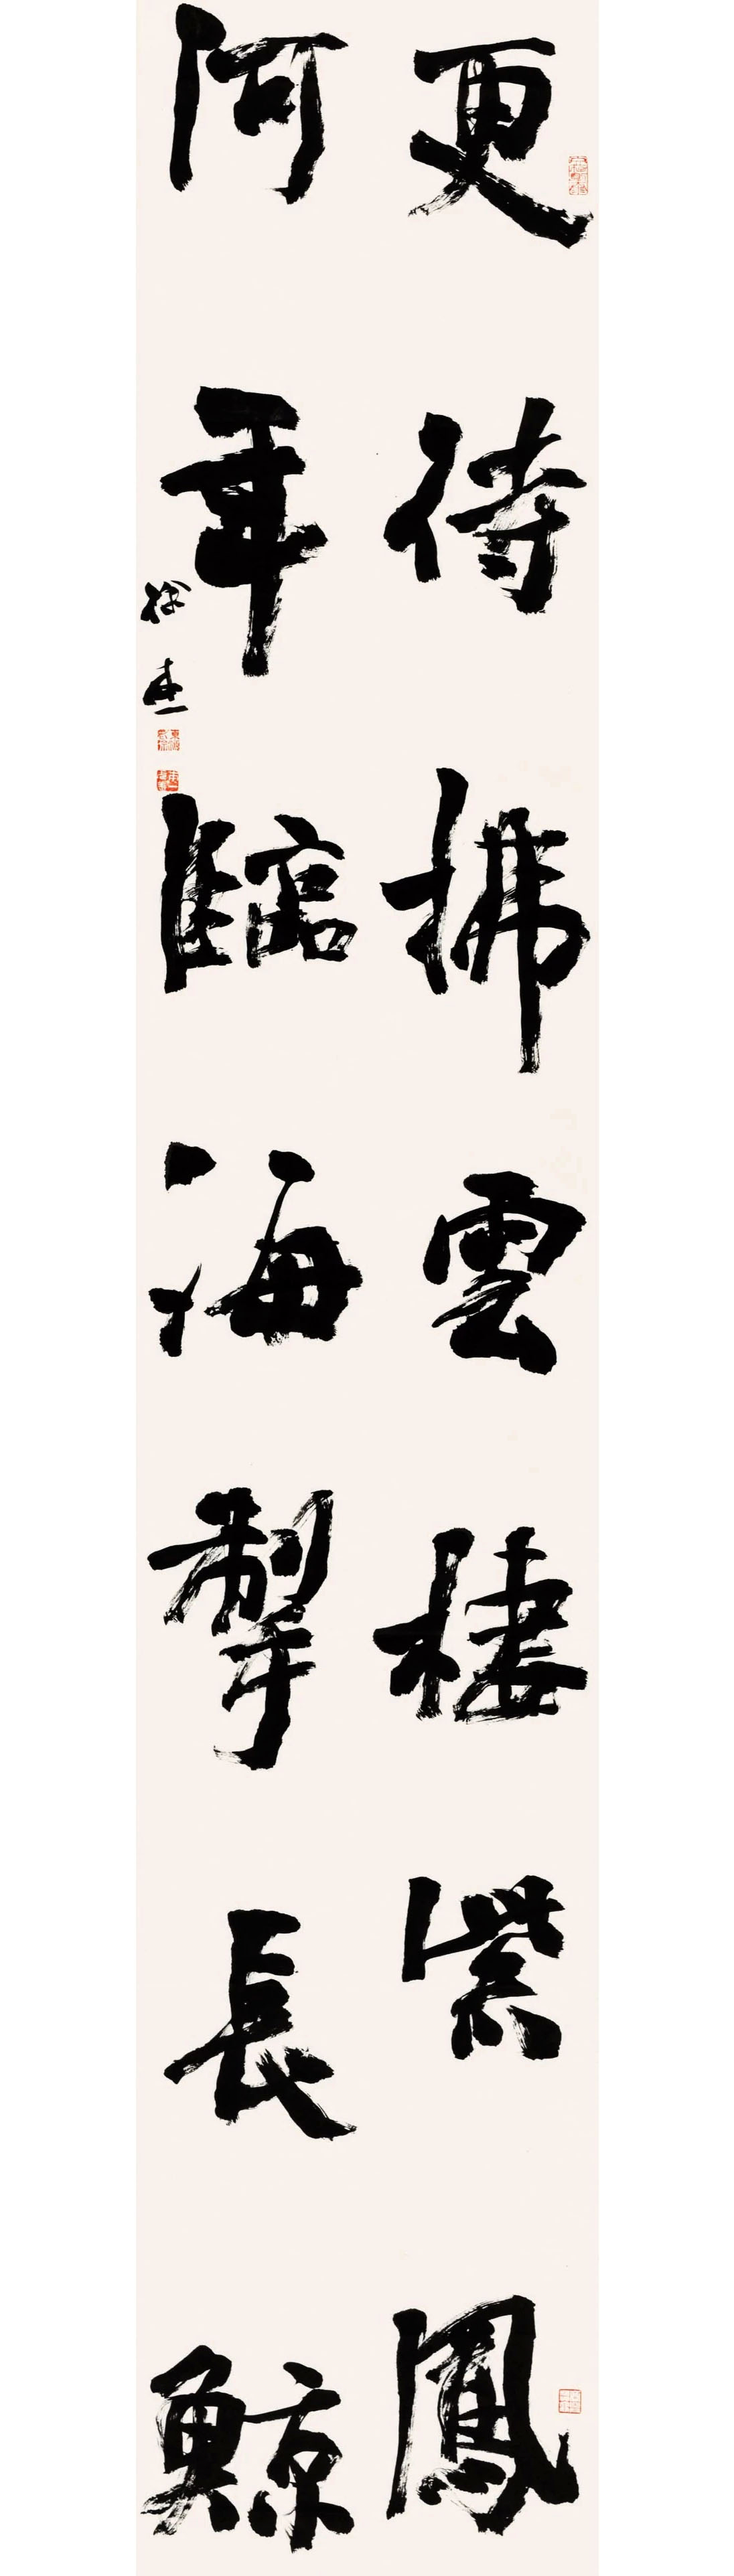 更待拂雲棲紫鳳
何年臨海掣長鯨